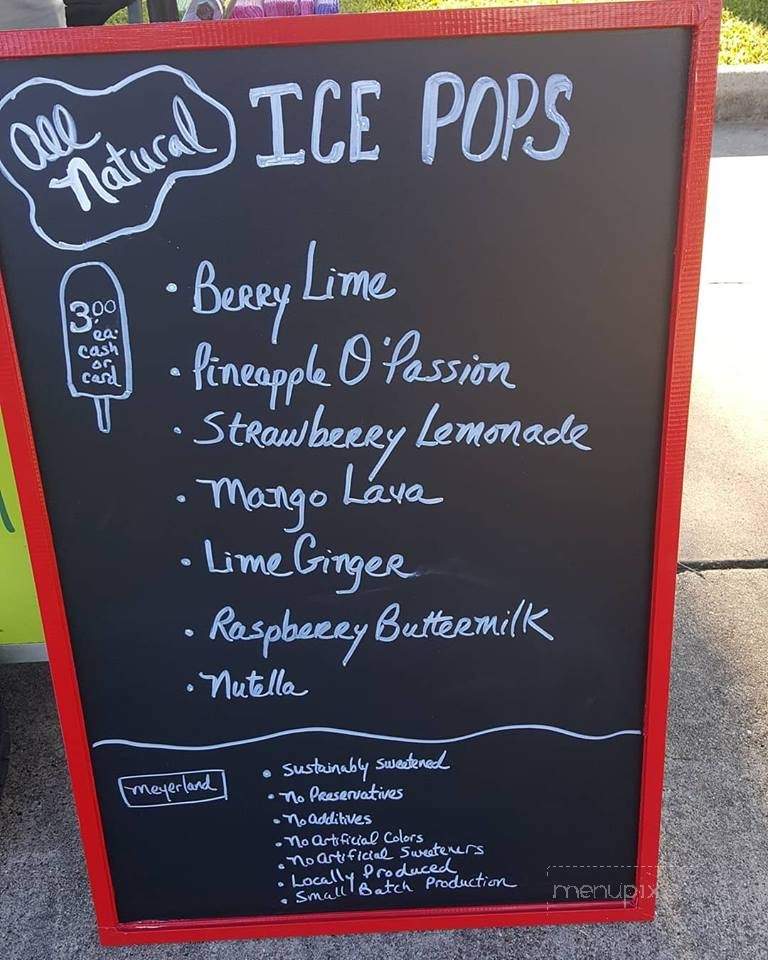 all
Natural
ICE POPS
3.00
ea.
cash
or
card
• Berry Lime
• Pineapple O'Passion
• Strawberry Lemonade
• Mango Lava
• Lime Ginger
• Raspberry Buttermilk
• Nutella
meyerland
• Sustainably Sweetened
• No Preservatives
• No additives
• No Artificial Colors
• No Artificial Sweeteners
• Locally Produced
• Small Batch Production
menupix